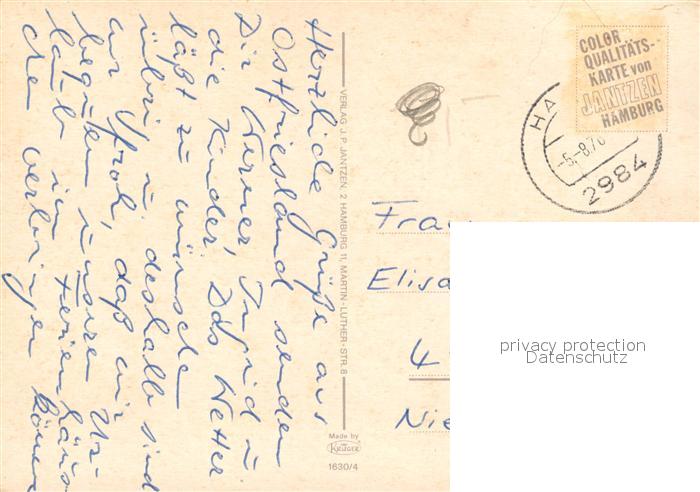 Herzliche Grüße aus
Ostfriesland senden
Dir Werner, Ingrid u.
die Kinder. Das Wetter
läßt zu wünschen
übrig u. deshalb sind
wir froh, daß wir
begann unseren Ur-
laub im Ferienhäus-
chen verbringen können
VERLAG J. P. JANTZEN, 2 HAMBURG 11, MARTIN-LUTHER-STR. 8
Made by
KRÜGER
1630/4
COLOR
QUALITÄTS-
KARTE von
JANTZEN
HAMBURG
HA
-5.-8.76
2984
Frau
Elisa
4
Nie
privacy protection
Datenschutz